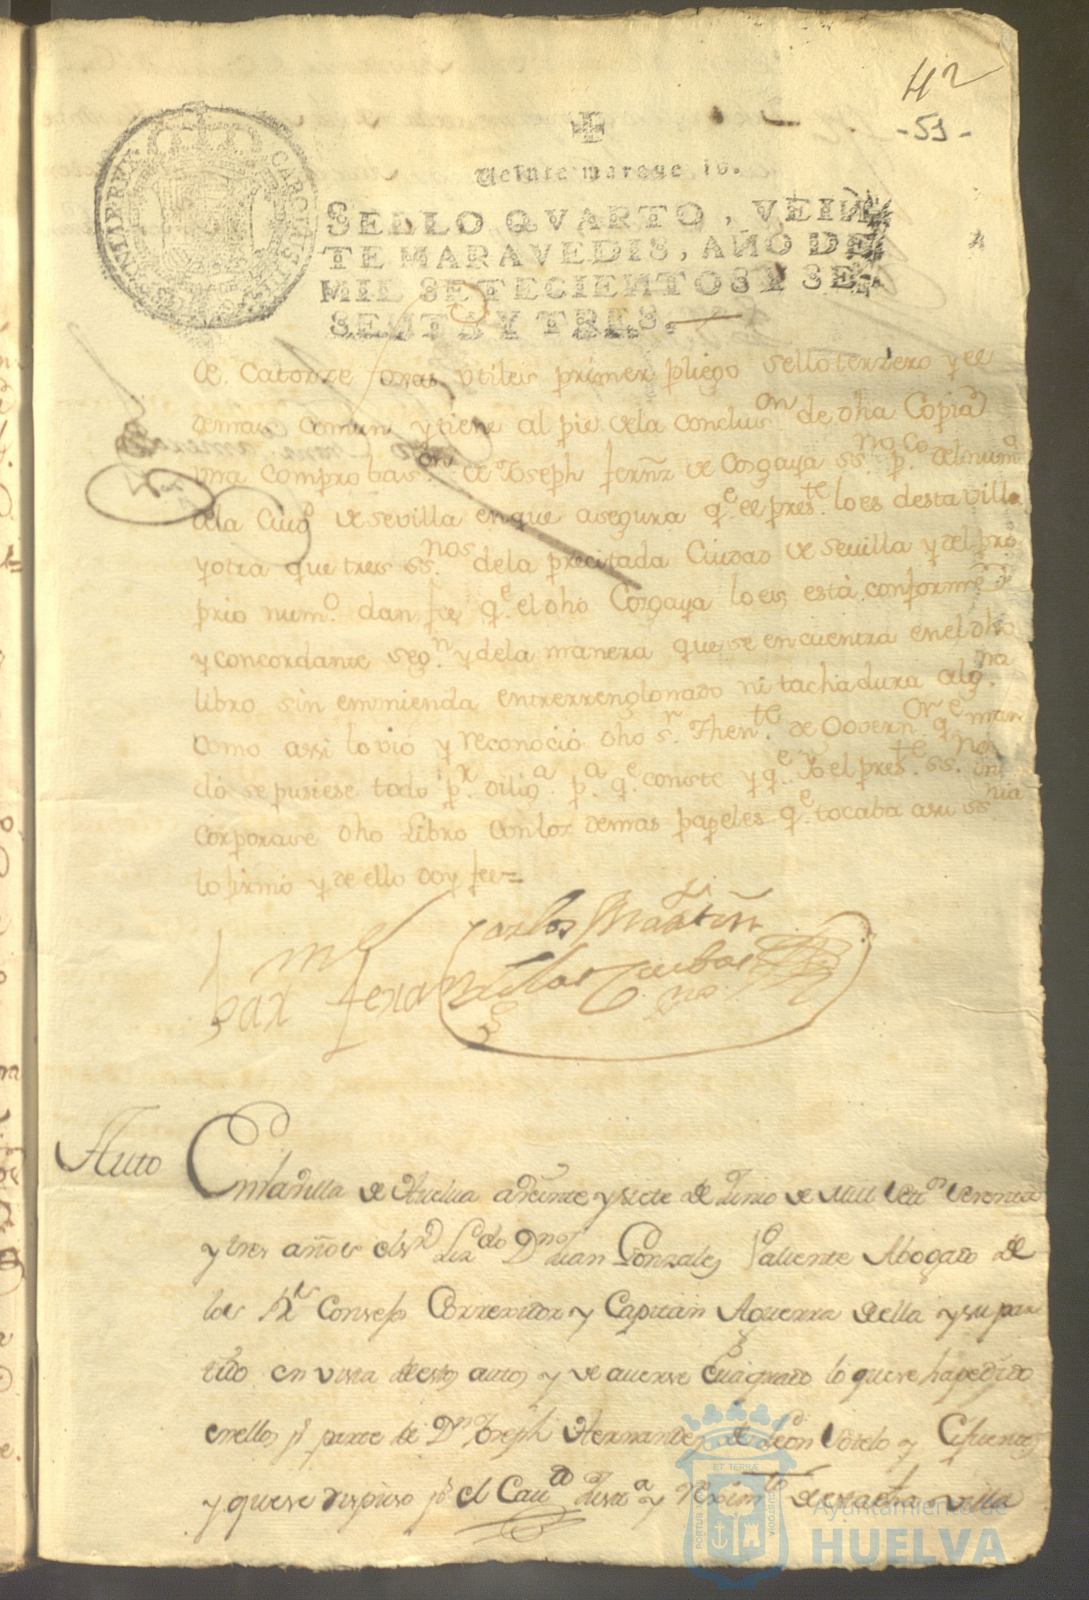 42
-51-
CAROLUS III
Veinte maraue is.
SELLO QVARTO, VEIN
TE MARAVEDIS, AÑO DE
MIL SETECIENTOS Y SE
SENTA Y TRES.
de Catorze oxas vtiles primer pliego sello terzero y el
demas comun y tiene al pie dela concluson de dha Copia
una comprobason de Joseph ferñz de Cosgaya ssno pco del numo
dela Ciud de Sevilla en que asegura qe el preste lo es desta villa
y otra que tres ssnos dela precitada Ciudad de Sevilla y del pro
prio numo dan fee qe el dho Cosgaya lo es, está conforme
y concordante segn y dela manera que se encuentra en el dho
libro sin enmienda entrerrenglonado ni tachadura algna
como assi lo vió y reconoció dho sr Thente de Governor qe man
dó se pusiese todo pr diliga pa qe conste y qe Yo el preste ssno in
corporase dho Libro con los demas papeles qe tocaba asu ssria
lo firmó y de ello doy fee=
Carlos Martin
Auto
En la villa de Huelva a Veinte y siete de Junio de Mill setts sesenta
y tres años el sr Lizdo Dn Juan Gonzales Valiente Abogado de
los Rs Consejos Correxidor y Capitan Aguerra de ella y su par
tido en vista destos autos y de auerse euaquado lo que se ha pedido
en ellos pr parte de Dn Joseph Hernandez de Leon Sotelo y Cifuentes
y que se dispuso pr el Caudo Justa y Reximto de esta dha villa
PORTUS
ET TERRAE
CUSTODIA
Ayuntamiento de
HUELVA